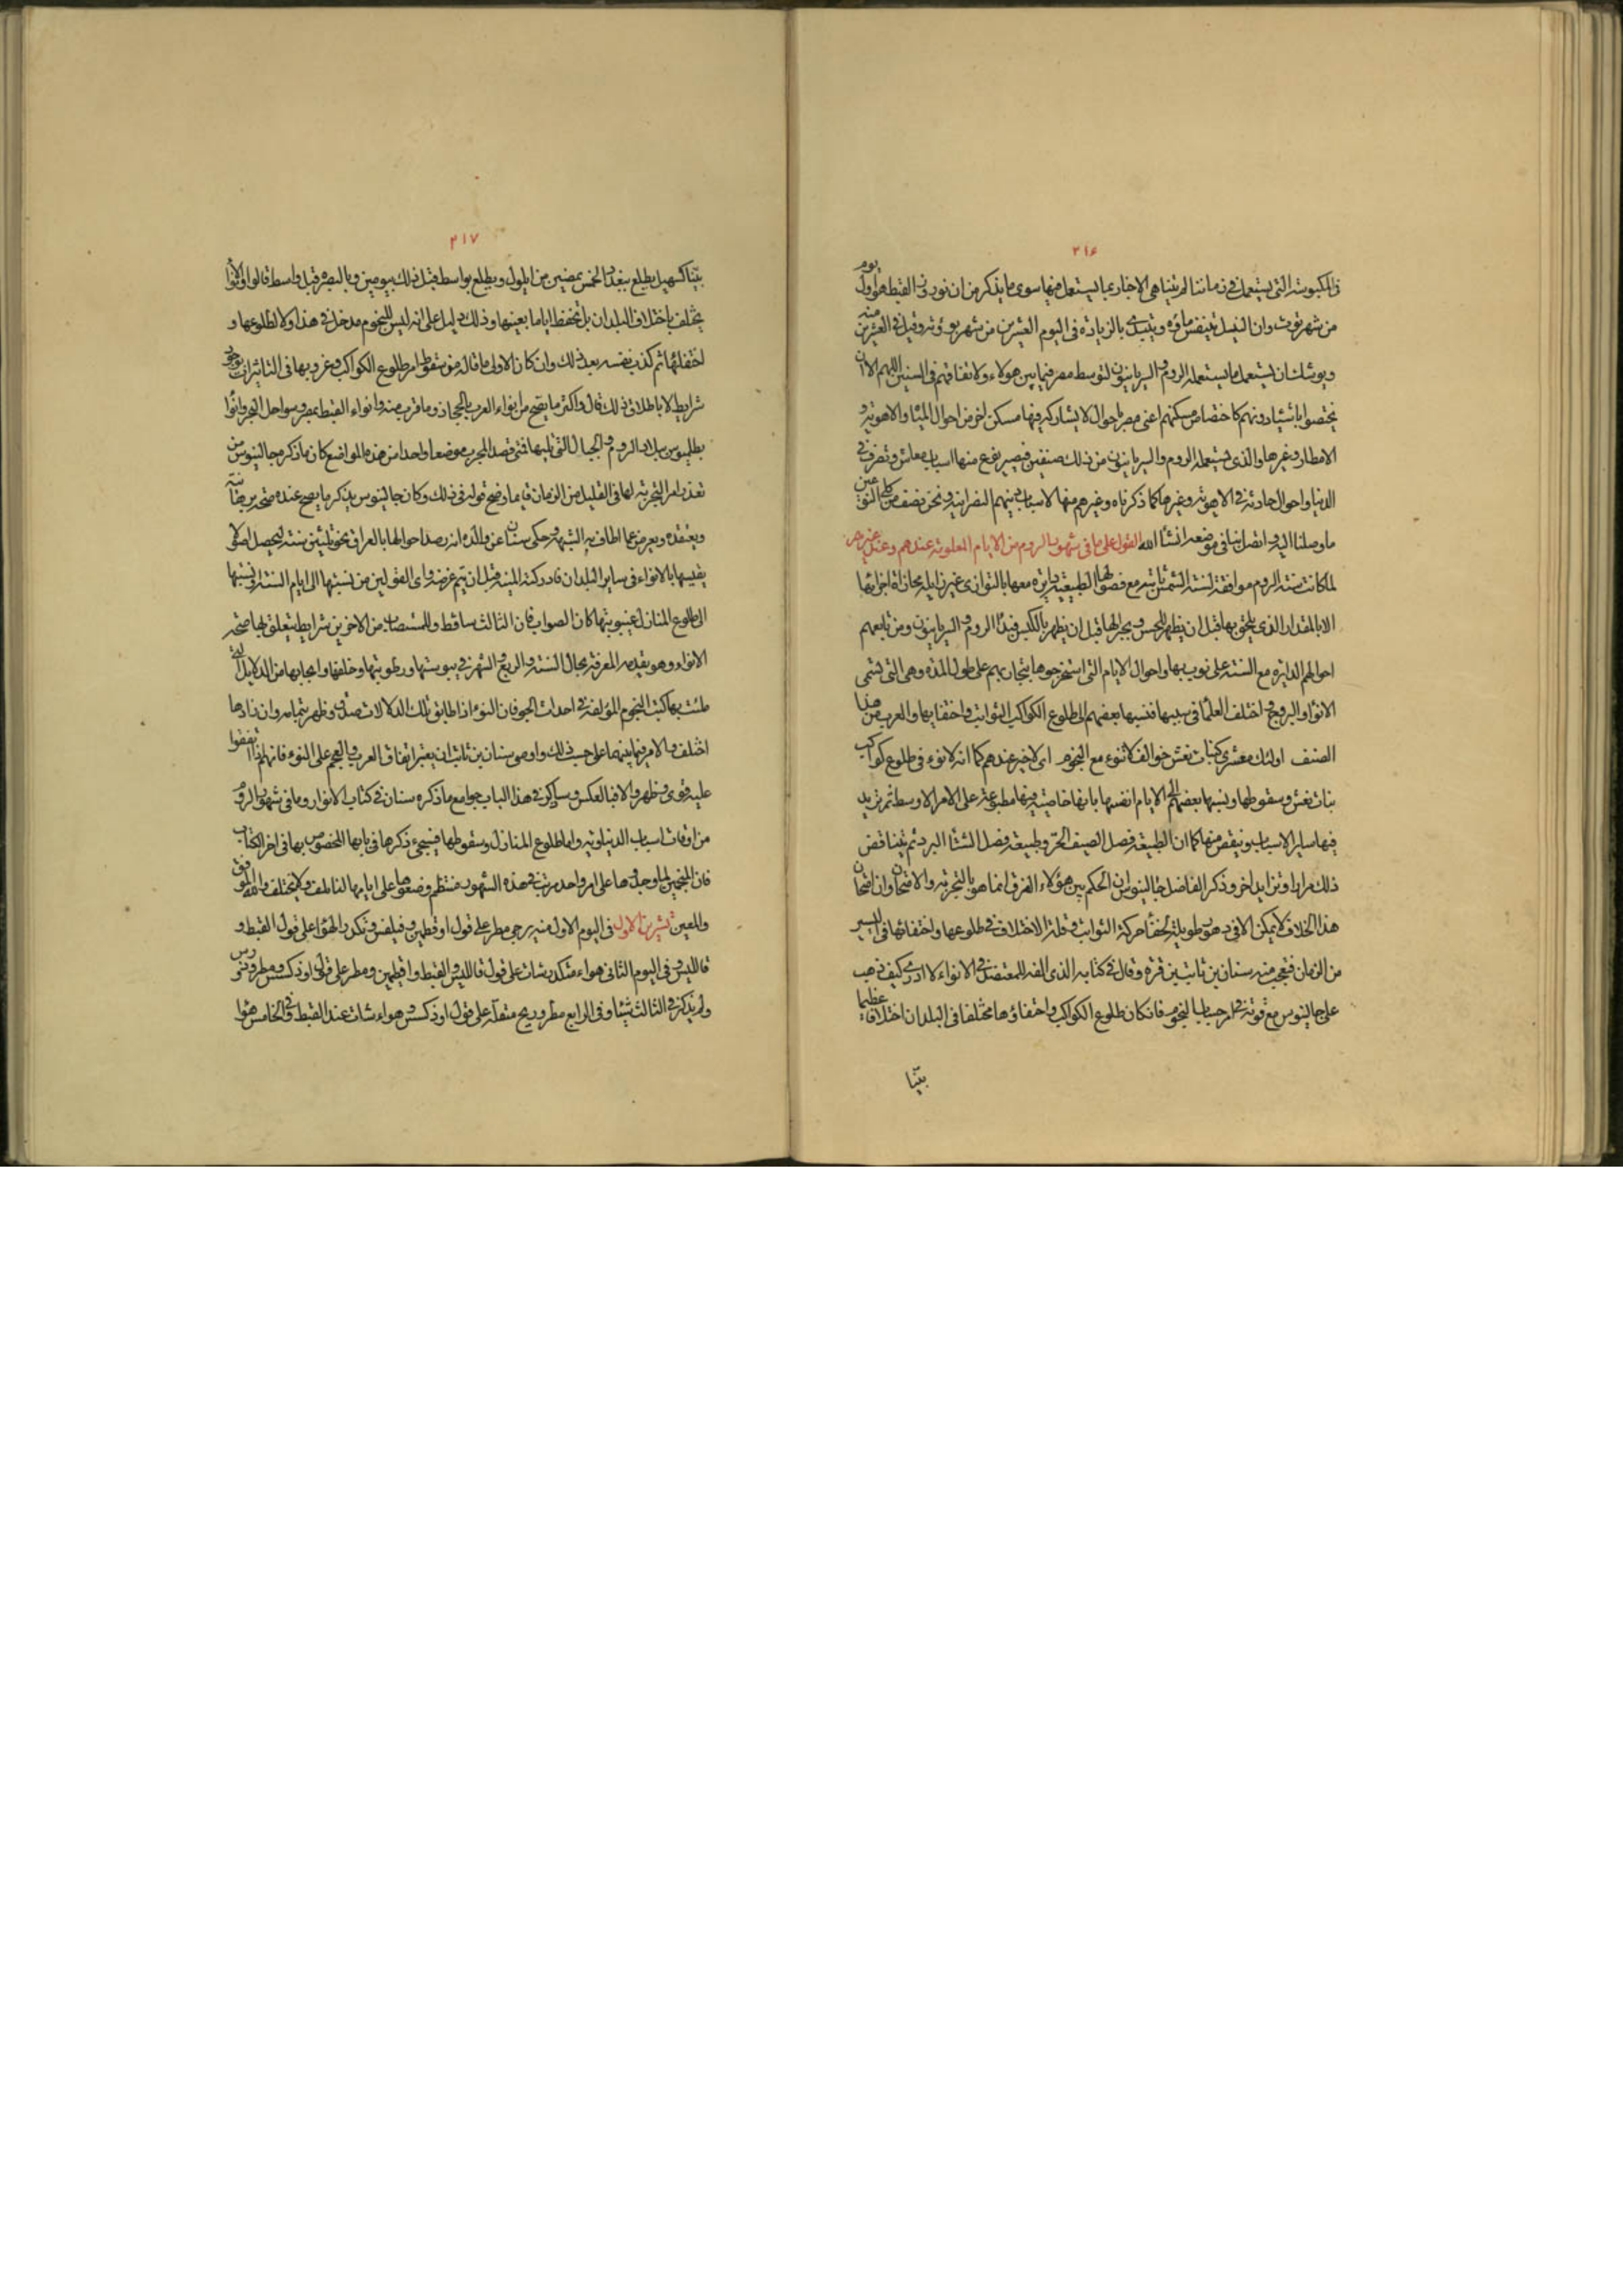 ٢١۶
فى المكبوسة التى يستعمل فى زماننا لم يتناهى الاخبار بما يستعمل فيها سوى ما يذكر من ان نوروز القبط هو اول يوم
من شهر توت وان النيل يتنفس ماؤه ويبتدى بالزيادة فى اليوم العشرين من شهر بؤنة وقيل فى العشرين منه
ويوشك ان يستعمل ما يستعمله الروم والسريانيون لتوسط مصر فيما بين هولاء ولاتفاقهم فى السنين اللهم الا ان
يختصوا باشياء دونهم كاختصاص مسكنهم اعنى مصر باحوال لا يشاركه فيها مسكن اخر من احوال المياه والاهوية و
الامطار وغيرها والذى يستعمله الروم والسريانيون من ذلك صنفين فيصير نوع منها اسباب معاش وتصرف فى
الدنيا واحوال حادثة فى الاهوية وغيرها كما ذكرناه وغيرهم منها لاسباب دينهم النصرانية ونحن نصف من كلى النوعين
ما وصلنا اليه واتصل بنا فى موضعه انشا الله القول على ما فى شهور الروم من الايام المعلومة عندهم وعند غيرهم
لما كانت سنة الروم موافقة لسنة الشمس ثابتة مع فصولها الطبيعية دايرة معها بالتوازى غير زايلة محاذاة اجزائها
الا بالمقدار الذى يلحق بها قبل ان يظهر للحس ويجبر لها قبل ان يظهر بالكبس قيد الروم والسريانيون ومن تابعهم
احوالهم الدايرة مع السنة على نوب بها واحوال الايام التى استخرجوها بتجاربهم على طول المدة وهى التى تسمى
الانواء والبروج واختلف العلماء فى سببها فنسبها بعضهم الى طلوع الكواكب الثوابت واختفايها والعرب من هذا
الصنف اولئك معشرى كبنات نعش خوالف لا تنوء مع النجوم اى لا خير عندهم كما انه لا نوء فى طلوع كواكب
بنات نعش وسقوطها ونسبها بعضهم الى الايام انفسها بانها خاصية فيها مطبوعة على الامر الاوسط ثم تزيد
فيها ساير الاسباب وينقص منها كما ان الطبيعة فصل الصيف الحر وطبيعة فصل الشتاء البرد ثم يتناقص
ذلك مرارا وتزايد اخر وذكر الفاضل جالينوس ان الحكم بين هؤلاء الفرق انما هو بالتجربة والامتحان وان امتحان
هذا الخلاف لا يمكن الا فى دهور طويلة لخفأ حركة الثوابت وقلة الاختلاف فى طلوعها واختفائها فى اليسير
من الزمان فتعجب منه سنان بن ثابت بن قرة وقال فى كتابه الذى الفه للمعتضد فى الانواء لا ادرى كيف ذهب
على جالينوس مع قوته فى امر حساب النجوم فان كان طلوع الكواكب واختفاؤها مختلفا فى البلدان اختلافا عظيما
بيّنا
٢١٧
بيّنا كسهيل يطلع ببغداد لخمس يمضين من ايلول ويطلع بواسط قبل ذلك بيومين وبالبصرة قبل واسط قالوا والانواء
يختلف باختلاف البلدان بل تحفظ اياما بعينها وذلك دليل على انه ليس للنجوم مدخل فى هذا ولا لطلوعها و
اختفائها ثم كذب نفسه بعد ذلك وان كان الاولى ما قاله من سقوط امر طلوع الكواكب وغروبها فى التاثيرات بوجود
شرايط لا باطلاق ذلك قال واكثر ما يصح من انواء العرب بالحجاز وما قرب منه وانواء القبط بمصر وسواحل البحر وانواء
بطلميوس ببلاد الروم والجبال التى تليها فمتى قصد المجرب موضعا واحدا من هذه المواضع كان ما ذكره جالينوس من
تعذر امر التجربة لها فى القليل من الزمان قايما وضح قوله فى ذلك وكان جالينوس يذكر ما يصح عنده صحة برهانية
ويعتقده ويعرض عما اطاف به الشبهة وحكى سنان عن والده انه رصد احوالها بالعراق نحو ثلثين سنة ليحصل اصولا
يقيسها بالانواء فى ساير البلدان فادركته المنية قبل ان يتم غرضه واى القولين من نسبتها الى ايام السنة ونسبتها
الى طلوع المنازل وغيبوبتها كان الصواب فان الثالث ساقط وللمستصاب من الاخرين شرايط يتعلق بها صحة
الانواء وهو تقدمه المعرفة بحال السنة والربع والشهر فى يبوستها ورطوبتها وخلفها وانجابها من الدلايل التى
ملئت بها كتب النجوم المؤلفة فى احداث الجو فان النوء اذا طابق تلك الدلالات صدق وظهر بتمامه وان ضادها
اختلف والامر فيما بينهما على حسب ذلك واوصى سنان بن ثابت ان يعتبر اتفاق العرب والعجم على النوء فانهم اذا اتفقوا
عليه قوى وظهر والا فبالعكس وساذكر فى هذا الباب جوامع ما ذكره سنان فى كتاب الانواء وما فى شهور الروم
من اوقات اسباب الدنياوية واما طلوع المنازل وسقوطها فيجىء ذكرها فى بابها المخصوص بها فى اخر الكتاب
فان المنجمين لما وجدوها على امر واحد مرتب فى هذه الشهور منتظم وضعوها على ايامها لتالف ولا يختلف والله الموفق
والمعين تشرين الاول فى اليوم الاول منه يرجى مطر على قول اوقطيمن وفيلفس وتكدر الهواء على قول القبط و
قالليس وفى اليوم الثانى هواء متكدر شات على قول قالليس والقبط واقيلمين ومطر على قول اوذكسس ومطرودرس
ولم يذكر فى الثالث شيئا وفى الرابع مطر وريح متقلبة على قول اوذكسس وهواء شات عند القبط وفى الخامس هواء